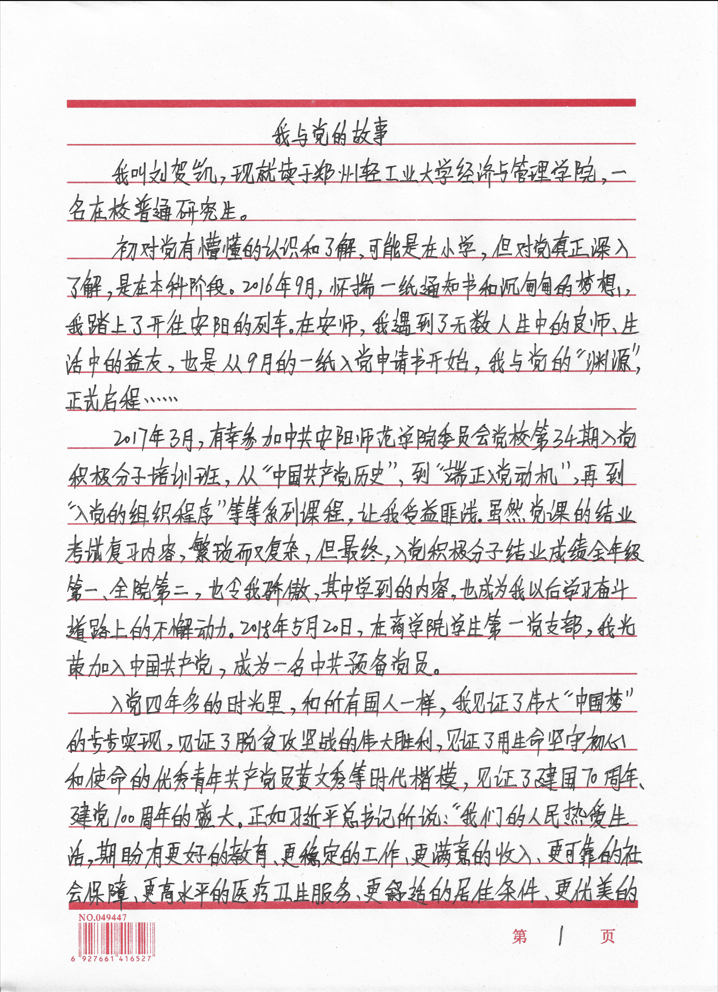 我与党的故事
我叫刘贺凯，现就读于郑州轻工业大学经济与管理学院，一
名在校普通研究生。
初对党有懵懂的认识和了解，可能是在小学，但对党真正深入
了解，是在本科阶段。2016年9月，怀揣一纸通知书和沉甸甸的梦想，
我踏上了开往安阳的列车。在安师，我遇到了无数人生中的良师、生
活中的益友，也是从9月的一纸入党申请书开始，我与党的“渊源”，
正式启程……
2017年3月，有幸参加中共安阳师范学院委员会党校第34期入党
积极分子培训班，从“中国共产党历史”，到“端正入党动机”，再到
“入党的组织程序”等等系列课程，让我受益匪浅。虽然党课的结业
考试复习内容，繁琐而又复杂，但最终，入党积极分子结业成绩全年级
第一、全院第二，也令我骄傲，其中学到的内容，也成为我以后学习奋斗
道路上的不懈动力。2018年5月20日，在商学院学生第一党支部，我光
荣加入中国共产党，成为一名中共预备党员。
入党四年多的时光里，和所有国人一样，我见证了伟大“中国梦”
的步步实现，见证了脱贫攻坚战的伟大胜利，见证了用生命坚守初心
和使命的优秀青年共产党员黄文秀等时代楷模，见证了建国70周年、
建党100周年的盛大。正如习近平总书记所说：“我们的人民热爱生
活，期盼有更好的教育、更稳定的工作、更满意的收入、更可靠的社
会保障、更高水平的医疗卫生服务、更舒适的居住条件、更优美的
NO.049447
6 927661 416527
第 1 页